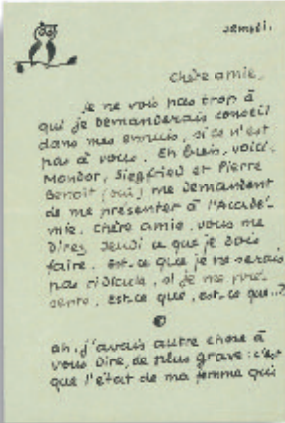 samedi.
Chère amie,
je ne vois pas trop à
qui je demanderais conseil
dans mes ennuis, si ce n'est
pas à vous. Eh bien, voici.
Mondor, Siegfried et Pierre
Benoit (oui) me demandent
de me présenter à l'Acadé-
mie. Chère amie, vous me
direz jeudi ce que je dois
faire. Est-ce que je ne serais
pas ridicule, si je me pré-
sente, est-ce que, est-ce que...?
ah, j'avais autre chose à
vous dire, de plus grave: c'est
que l'état de ma femme qui